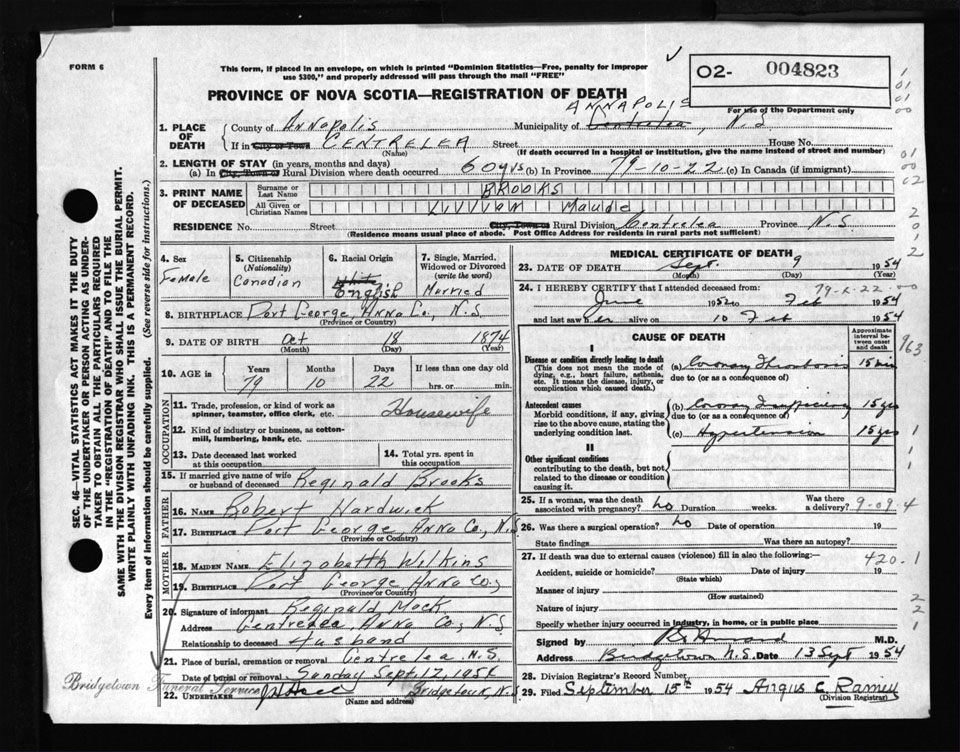 FORM 6
This form, if placed in an envelope, on which is printed "Dominion Statistics—Free, penalty for improper
use $300," and properly addressed will pass through the mail "FREE"
O2- 004823
PROVINCE OF NOVA SCOTIA—REGISTRATION OF DEATH
For use of the Department only
ANNAPOLIS
1. PLACE OF DEATH
County of Annapolis Municipality of Centrelea, N.S
If in City or Town CENTRELEA Street House No.
(Name) (If death occurred in a hospital or institution, give the name instead of street and number)
2. LENGTH OF STAY (in years, months and days)
(a) In City, Town or Rural Division where death occurred 60 yrs (b) In Province 79-10-22 (c) In Canada (if immigrant)
3. PRINT NAME OF DECEASED
Surname or Last Name BROOKS
All Given or Christian Names Maude
RESIDENCE No. Street City, Town or Rural Division Centrelea Province N.S.
(Residence means usual place of abode. Post Office Address for residents in rural parts not sufficient)
4. Sex Female
5. Citizenship (Nationality) Canadian
6. Racial Origin White English
7. Single, Married, Widowed or Divorced (write the word) Married
8. BIRTHPLACE Port George, Anna Co., N.S.
(Province or Country)
9. DATE OF BIRTH Oct 18 1874
(Month) (Day) (Year)
10. AGE Years 79 Months 10 Days 22 If less than one day old hrs. or min.
OCCUPATION
11. Trade, profession, or kind of work as spinner, teamster, office clerk, etc. Housewife
12. Kind of industry or business, as cotton-mill, lumbering, bank, etc.
13. Date deceased last worked at this occupation
14. Total yrs. spent in this occupation
15. If married give name of wife or husband of deceased Reginald Brooks
FATHER
16. NAME Robert Hardwick
17. BIRTHPLACE Port George, Anna Co, N.S
(Province or Country)
MOTHER
18. MAIDEN NAME Elizabeth Wilkins
19. BIRTHPLACE Port George Anna Co,
(Province or Country)
20. Signature of informant Reginald
Address Centrelea, Anna Co, N.S.
Relationship to deceased Husband
21. Place of burial, cremation or removal Centrelea N.S.
Date of burial or removal Sunday Sept. 12, 1954
Bridgetown Funeral Service
22. UNDERTAKER Bridgetown, N.S.
(Name and address)
MEDICAL CERTIFICATE OF DEATH
23. DATE OF DEATH Sept. 9 1954
(Month) (Day) (Year)
24. I HEREBY CERTIFY that I attended deceased from:
June 1952 to Feb 1954
and last saw her alive on 10 Feb 1954
CAUSE OF DEATH
Approximate interval between onset and death
I
Disease or condition directly leading to death
(This does not mean the mode of dying, e.g., heart failure, asthenia, etc. It means the disease, injury, or complication which caused death.)
(a) Coronary Thrombosis 15 min
due to (or as a consequence of)
Antecedent causes
Morbid conditions, if any, giving rise to the above cause, stating the underlying condition last.
(b) Coronary 15 yrs
due to (or as a consequence of)
(c) Hypertension 15 yrs
II
Other significant conditions
contributing to the death, but not related to the disease or condition causing it.
25. If a woman, was the death associated with pregnancy? no Duration weeks. Was there a delivery?
9-09-4
26. Was there a surgical operation? no Date of operation 19
State findings Was there an autopsy?
27. If death was due to external causes (violence) fill in also the following:
420-1
Accident, suicide or homicide? Date of injury 19
(State which)
Manner of injury
(How sustained)
Nature of injury
Specify whether injury occurred in industry, in home, or in public place
Signed by M.D.
Address Bridgetown N.S. Date 13 Sept 1954
28. Division Registrar's Record Number
29. Filed September 15th 1954 Angus C. Ramey
(Division Registrar)
SEC. 46—VITAL STATISTICS ACT MAKES IT THE DUTY
OF THE UNDERTAKER OR PERSON ACTING AS UNDER-
TAKER TO OBTAIN ALL THE PARTICULARS REQUIRED
IN THE "REGISTRATION OF DEATH" AND TO FILE THE
SAME WITH THE DIVISION REGISTRAR WHO SHALL ISSUE THE BURIAL PERMIT.
WRITE PLAINLY WITH UNFADING INK. THIS IS A PERMANENT RECORD.
Every item of information should be carefully supplied. (See reverse side for instructions.)